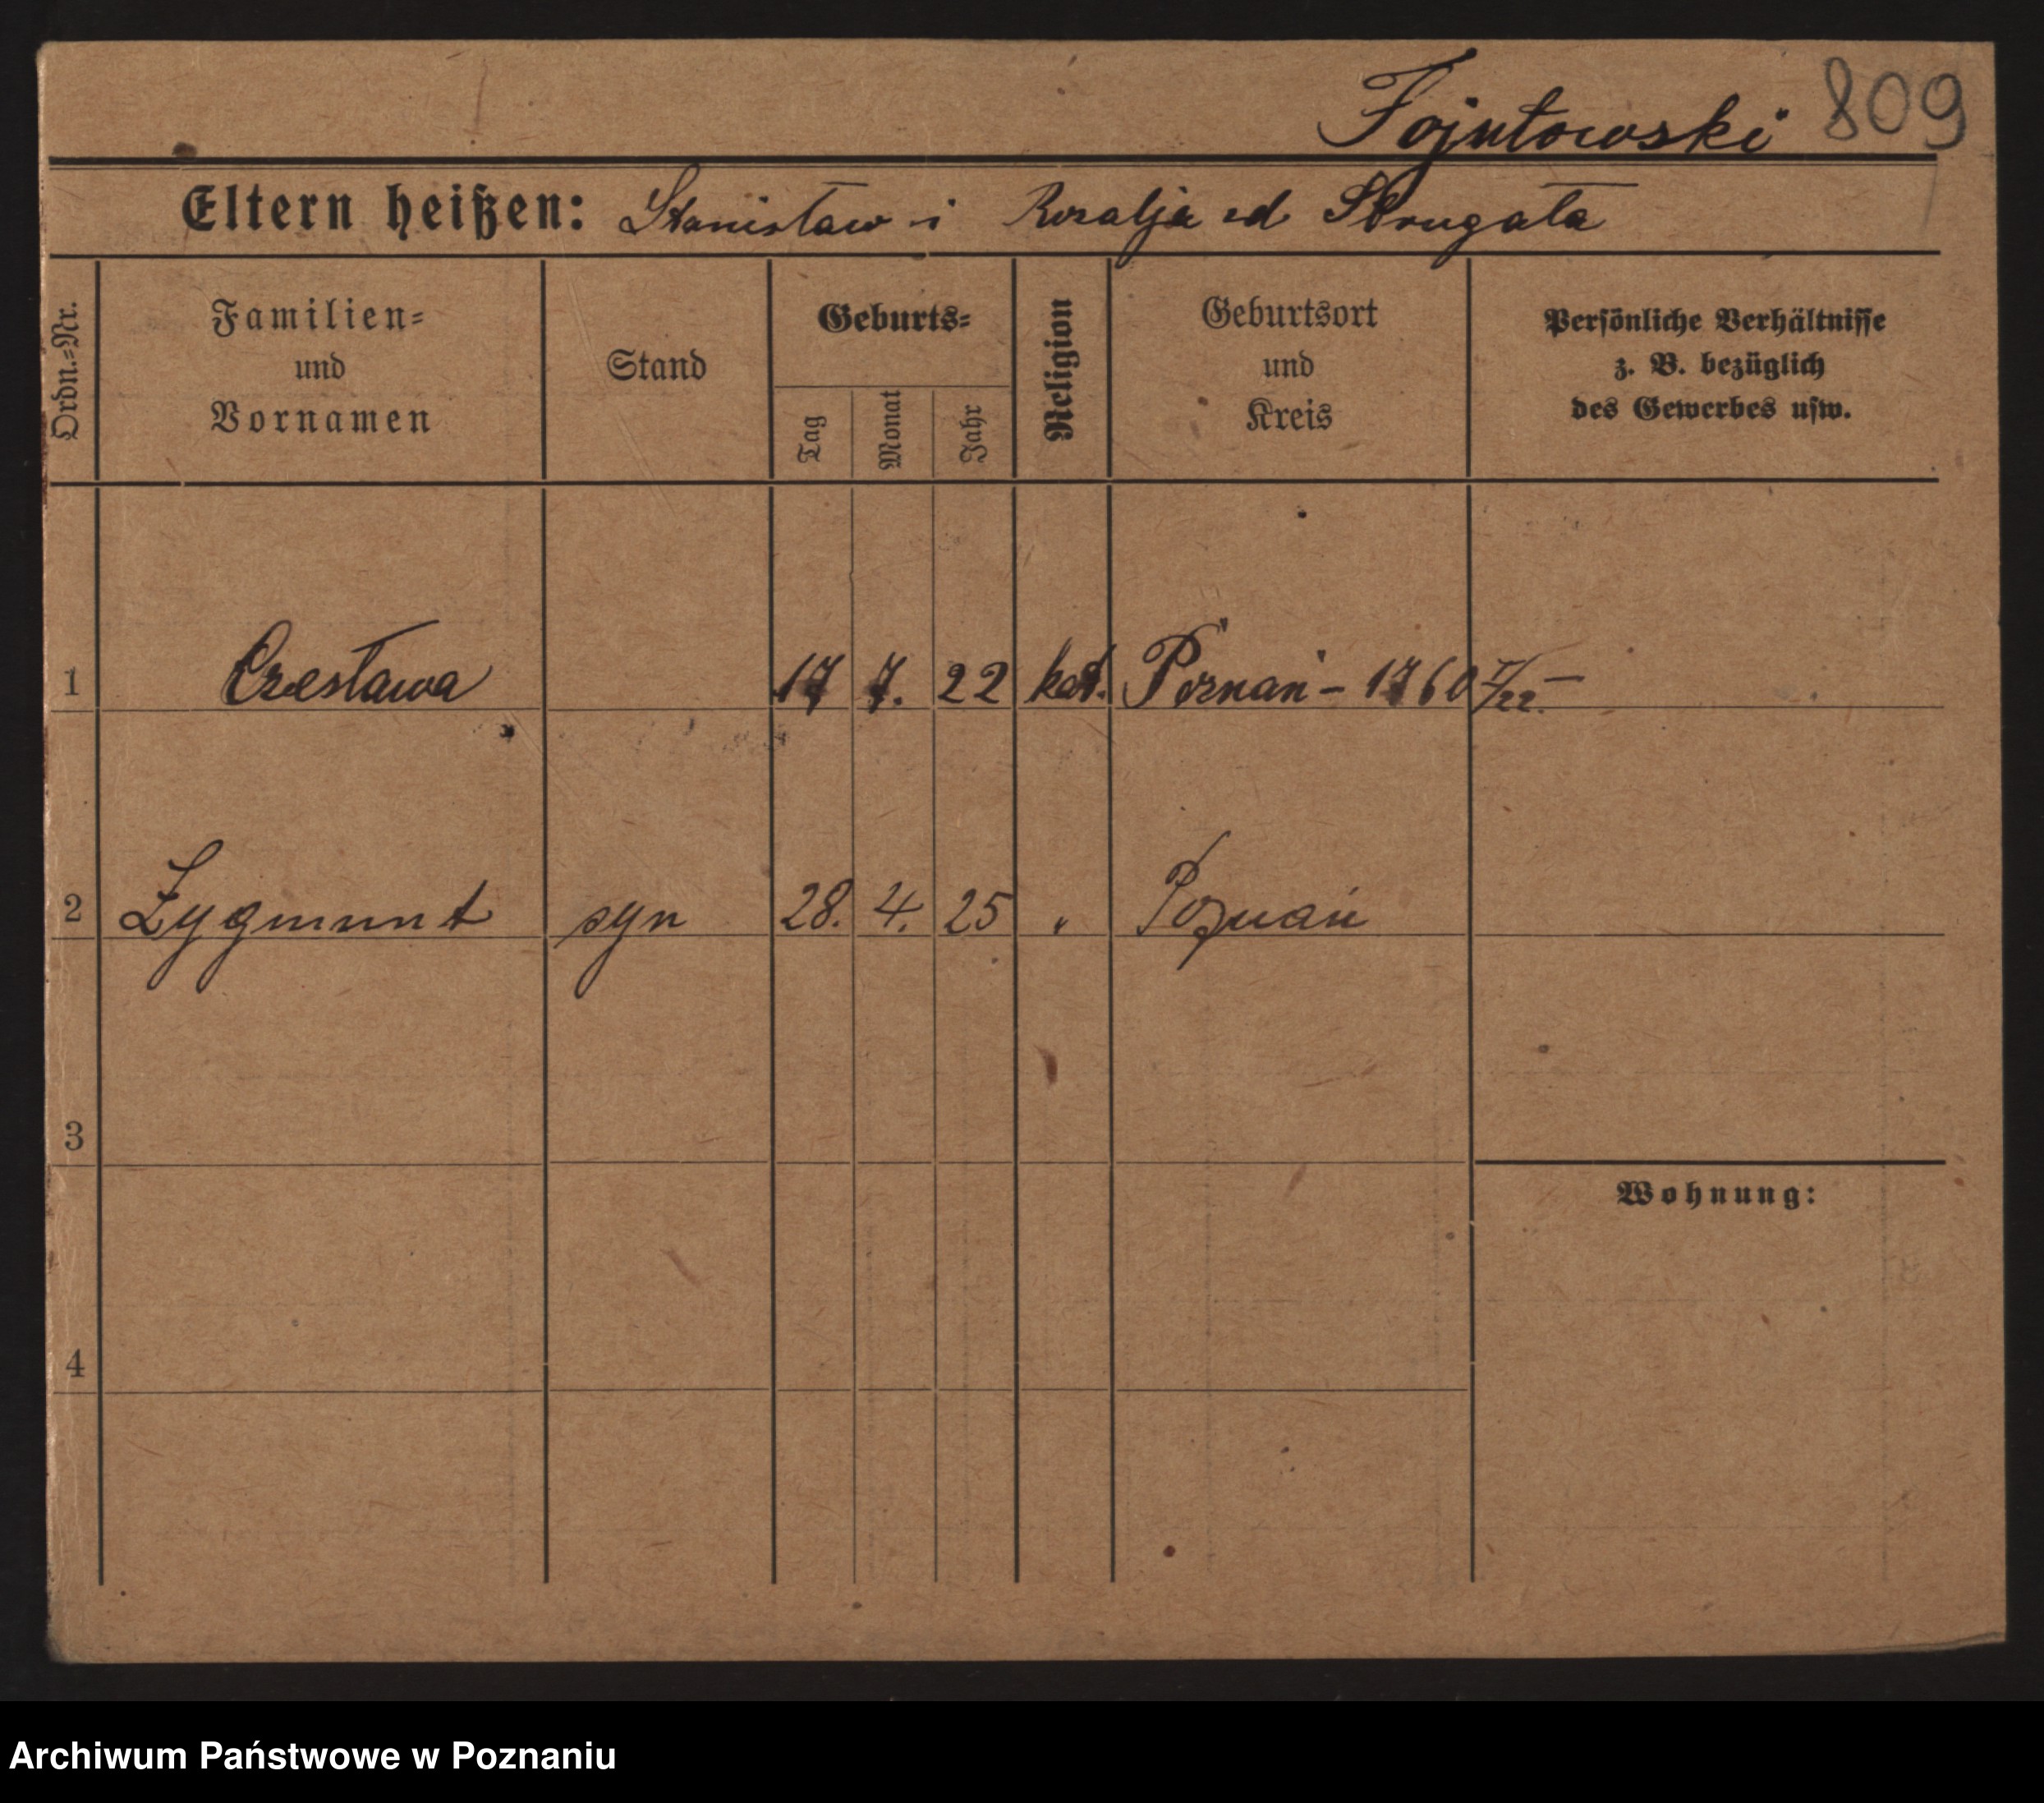 Fojutowski 809
Eltern heißen: Stanisław i Rozalja zd Strugała
Ordn.-Nr.
Familien-
und
Vornamen
Stand
Geburts-
Tag
Monat
Jahr
Religion
Geburtsort
und
Kreis
Persönliche Verhältnisse
z. B. bezüglich
des Gewerbes usw.
1 Czesława 17 7. 22 kat. Poznań - 1760 I/22. -
2 Zygmunt syn 28. 4. 25 " Poznań
3
Wohnung:
4
Archiwum Państwowe w Poznaniu